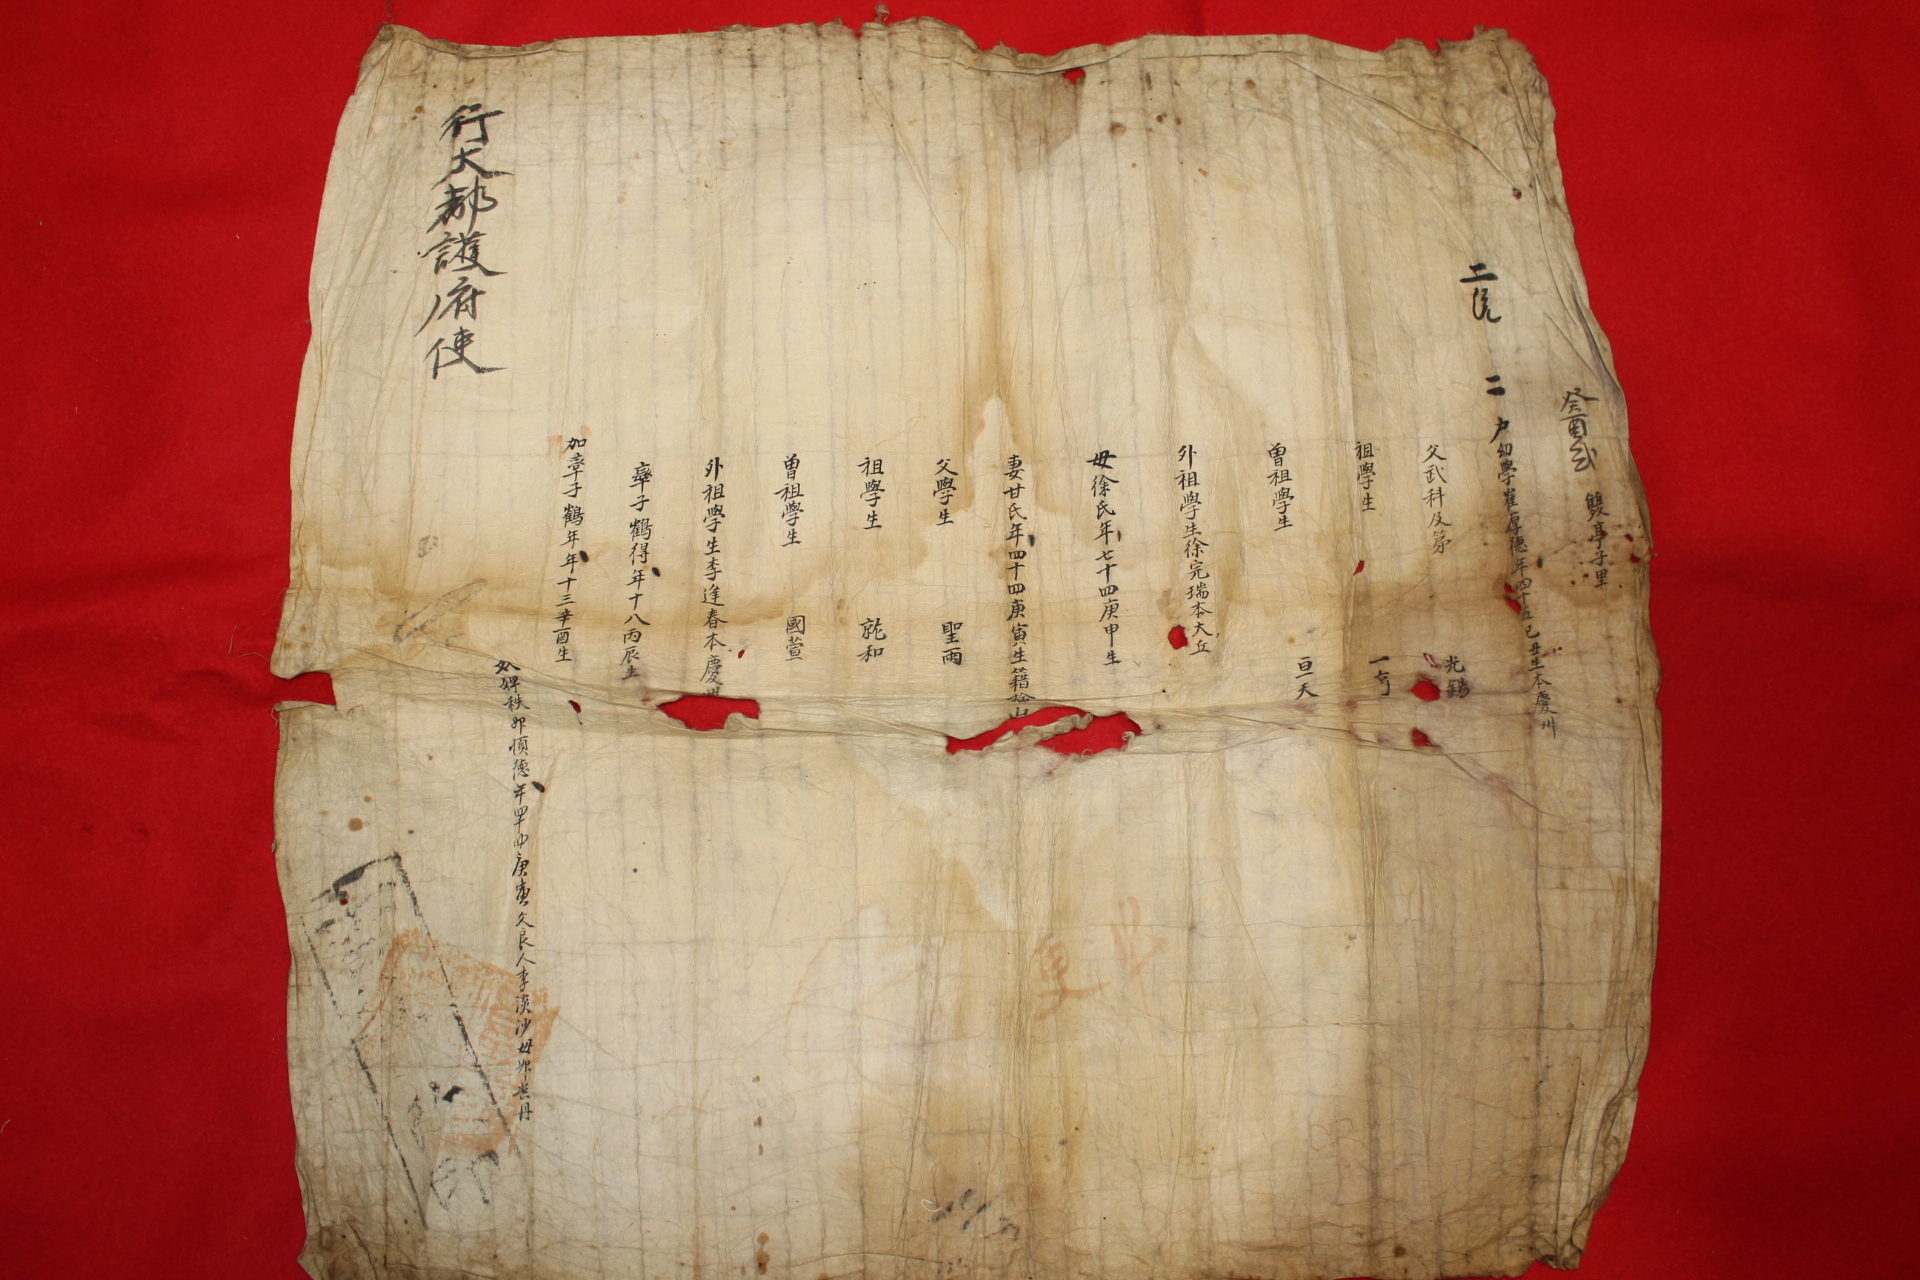 癸酉式 雙亭子里
二統 二 戶幼學崔厚德年四十五己丑生本慶州
父武科及第 光錫
祖學生 一亨
曾祖學生 亘天
外祖學生徐完瑞本大丘
母徐氏年七十四庚申生
妻甘氏年四十四庚寅生籍
父學生 聖雨
祖學生 就和
曾祖學生 國萱
外祖學生李逢春本慶州
率子鶴得年十八丙辰生
加率子鶴年年十三辛酉生
奴婢秩 順德年四十 庚寅父良人李 沙 母 丹
行大都護府使
印